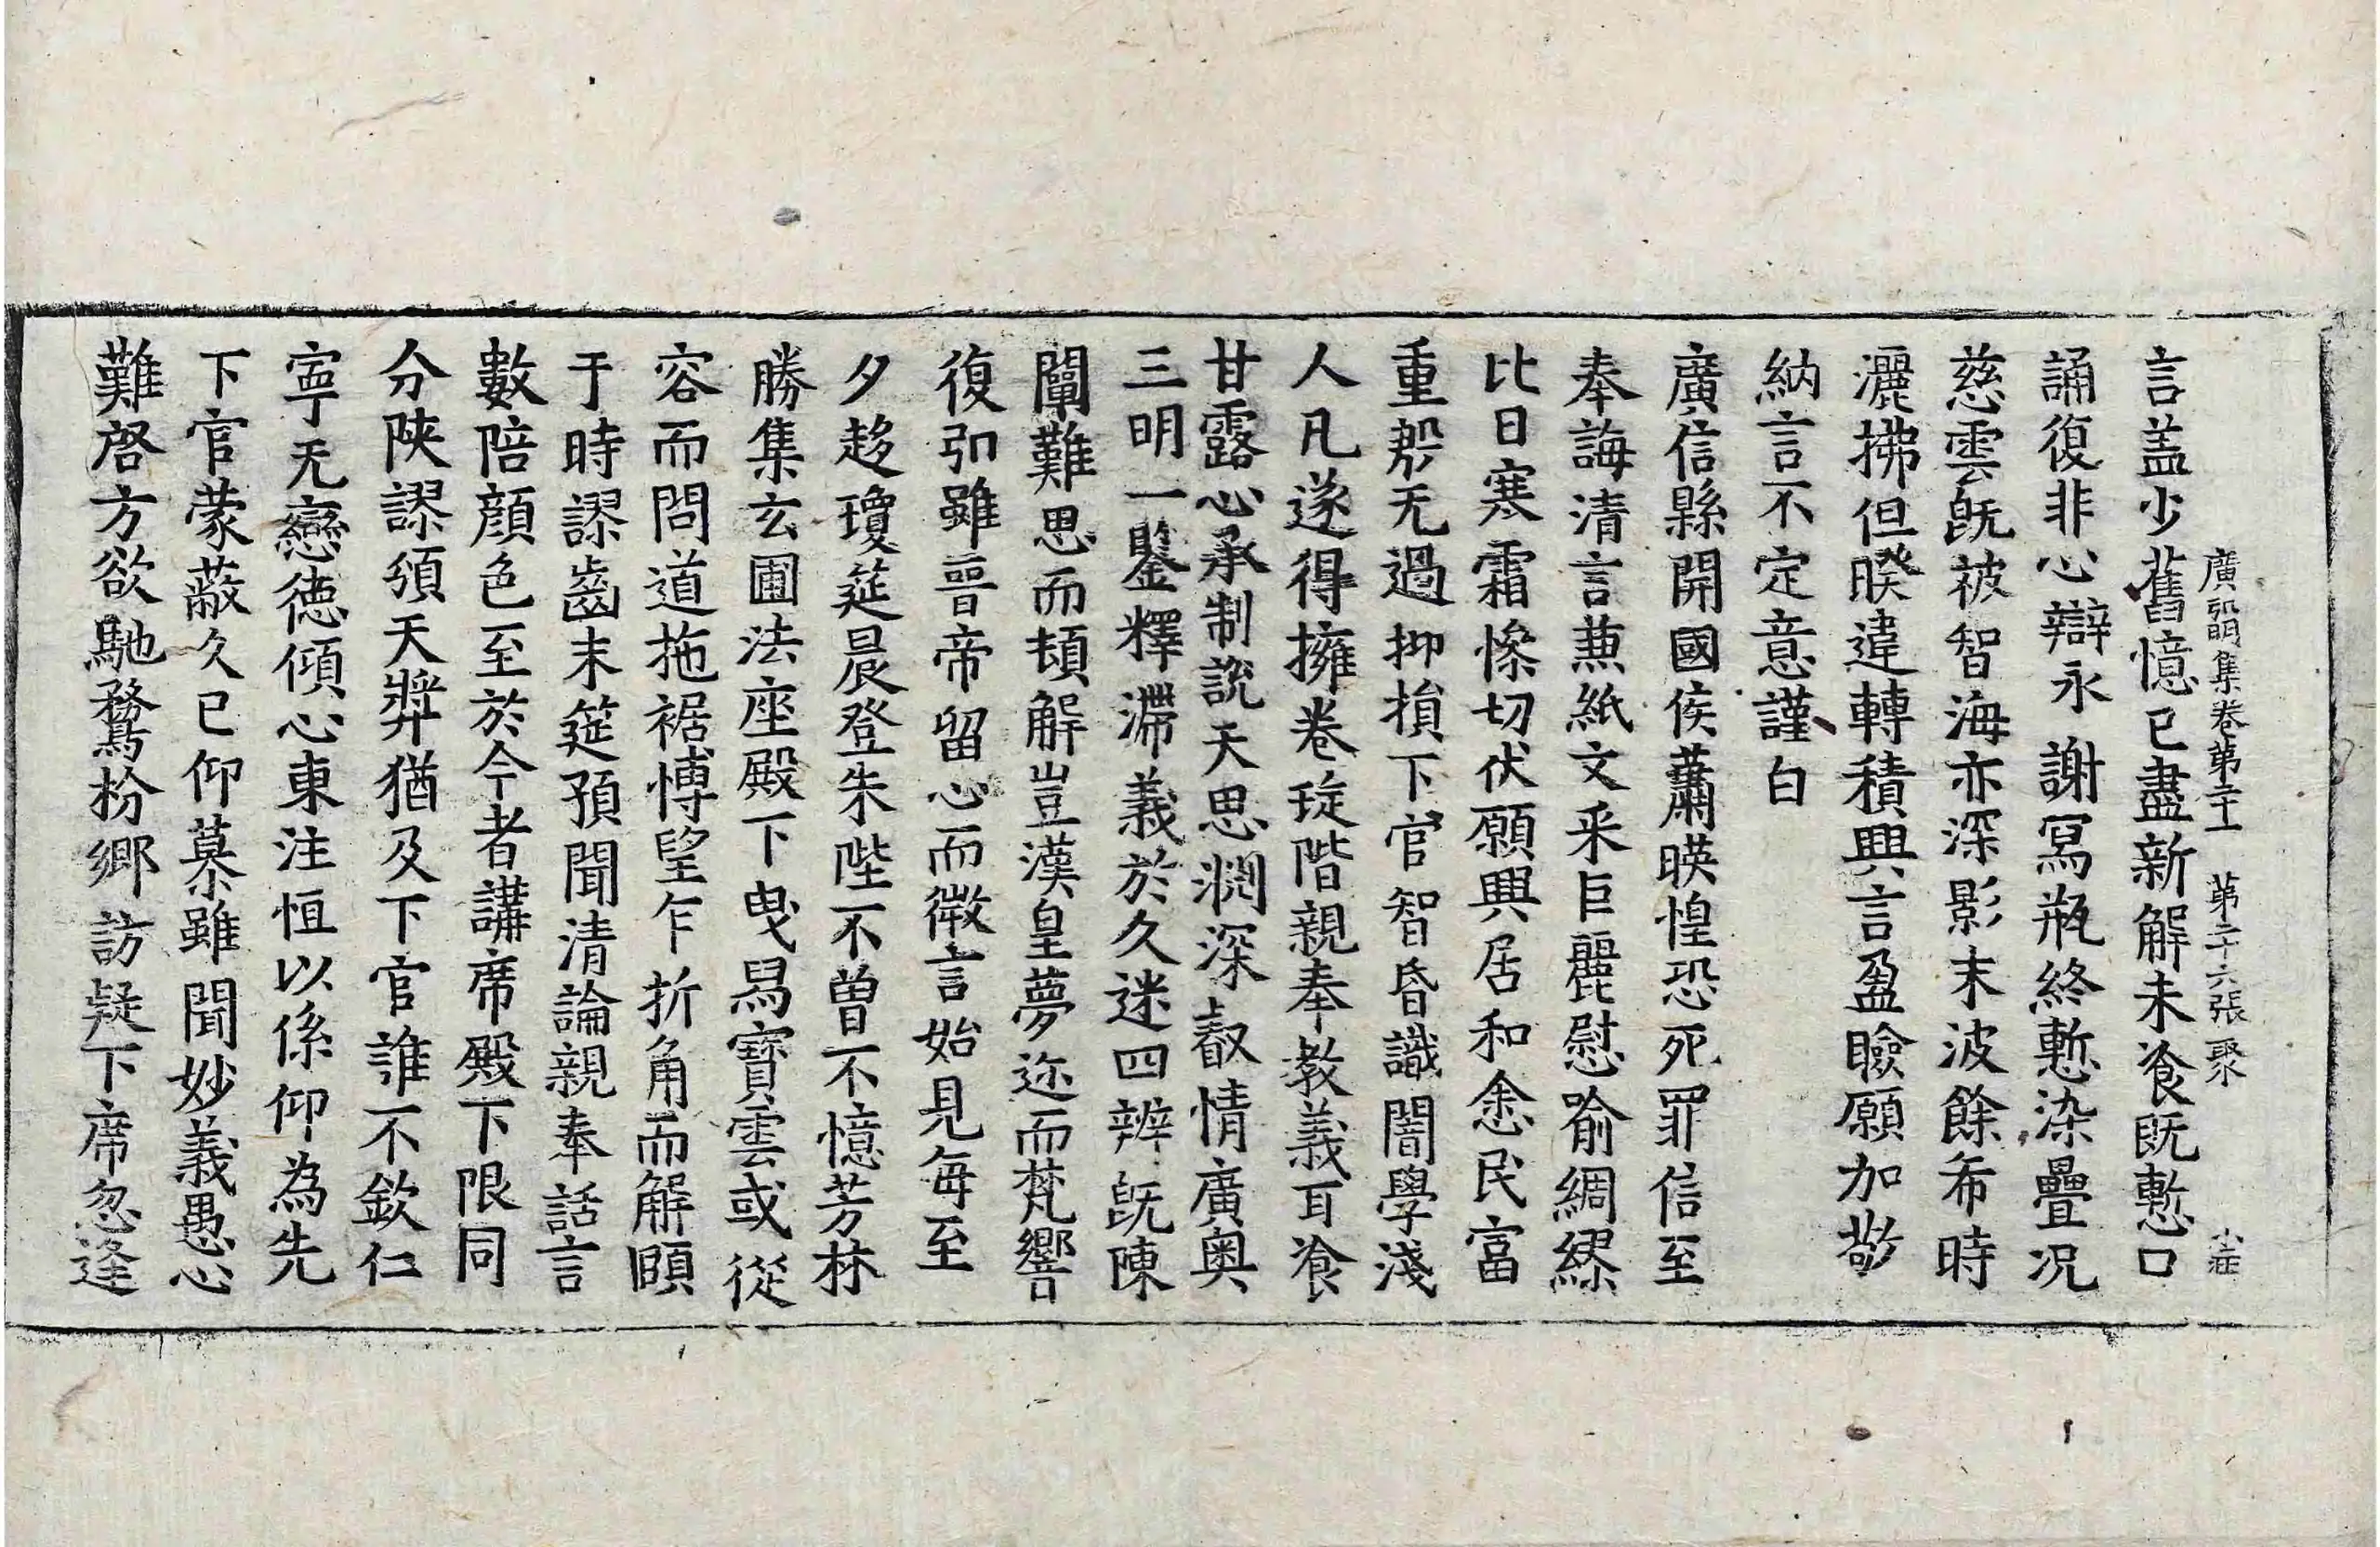 廣弘明集卷第二十一 第二十六張 聚 小莊
言盖少舊憶已盡新解未飡旣慙口
誦復非心辯永謝冩瓶終慙染疊況
慈雲旣被智海亦深影末波餘希時
灑拂但暌違轉積興言盈瞼願加敬
納言不定意謹白
廣信縣開國侯蕭暎惶恐死罪信至
奉誨清言蒹紙文采巨麗慰喻綢繆
比日寒霜慘切伏願興居和悆民富
重郀无過抑損下官智昏識闇學淺
人凡遂得擁卷琁階親奉教義耳飡
甘露心承制說天思渊深叡情廣奧
三明一鑒釋滯義於久迷四辨旣陳
闡難思而頓解豈漢皇夢迩而梵響
復引雖晉帝留心而微言始見每至
夕趍瓊筵晨登朱陛不曾不憶芳林
勝集玄圃法座殿下曳舄寶雲或從
容而問道拖裾博望乍折角而解頤
于時謬齒末筵預聞清論親奉話言
數陪顔色至於今者講席殿下限同
分陝謬頒天弉猶及下官誰不欽仁
寧无戀德傾心東注恒以係仰為先
下官蒙蔽久已仰慕雖聞妙義愚心
難啓方欲馳騖枌鄉訪疑下席忽逢